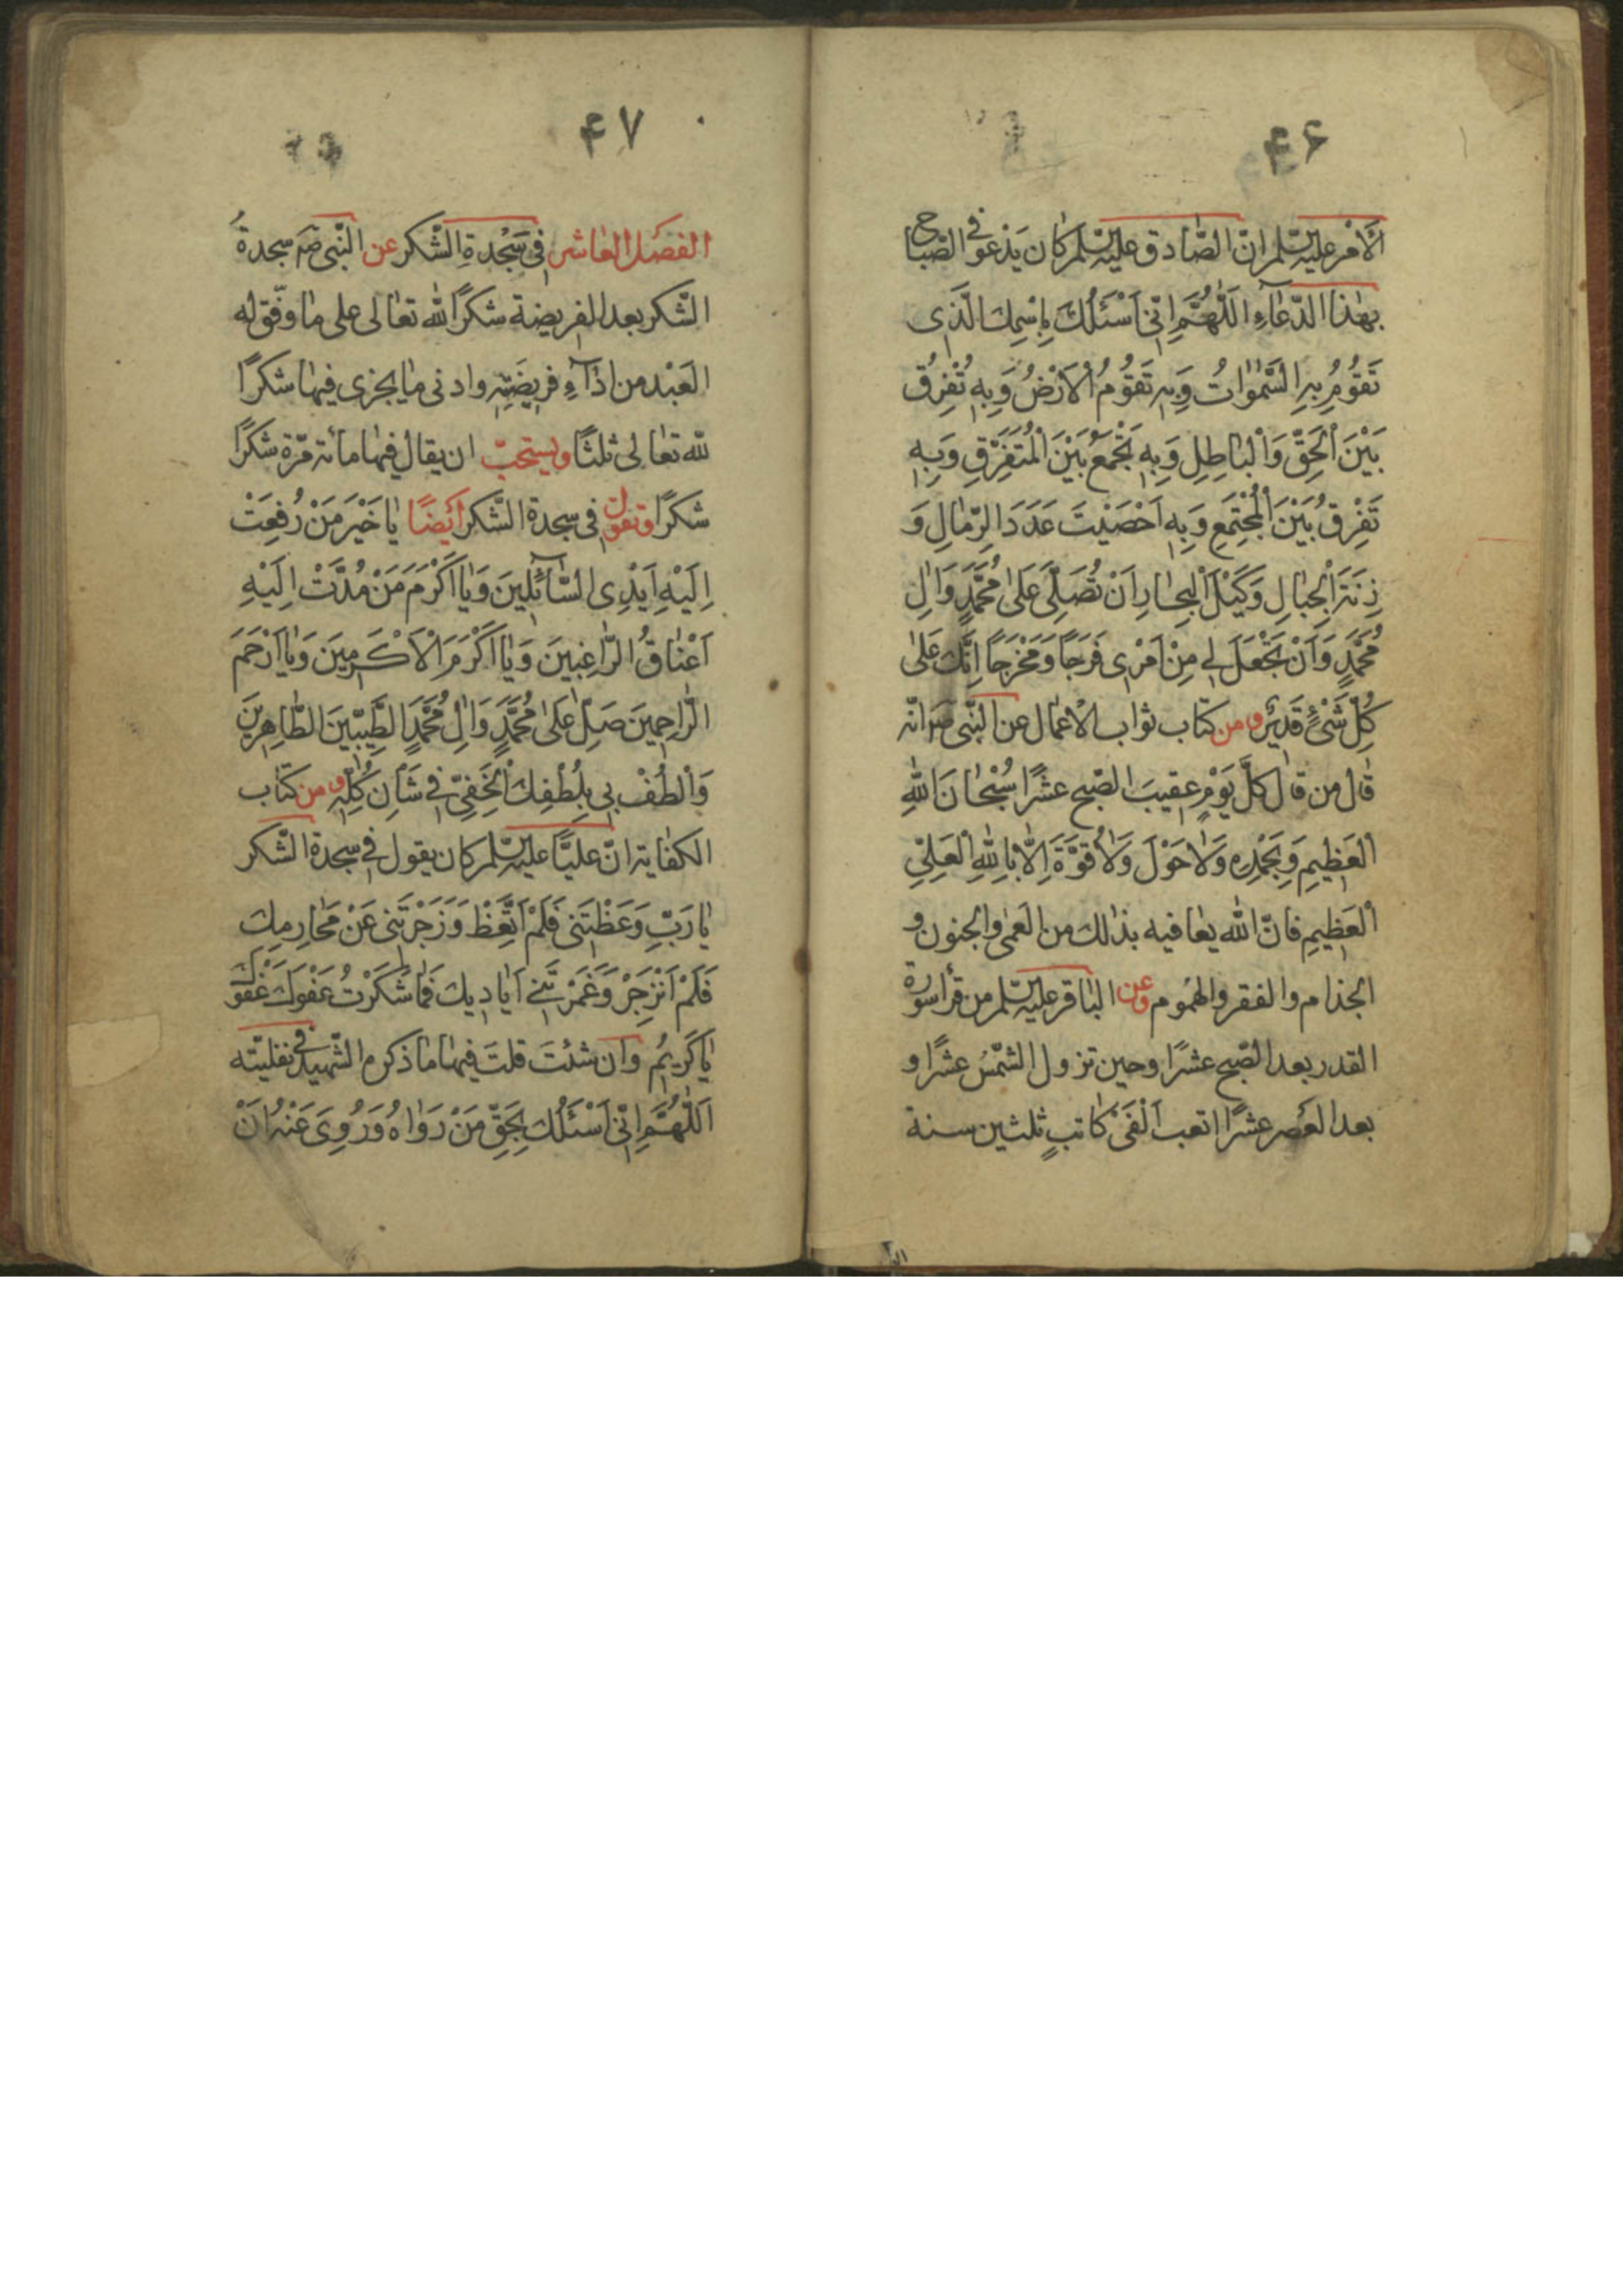 ۴۶
الأمر عليه السّلم انّ الصّادق عليه السّلم كان يَدْعو في الصّباح
بهٰذا الدّعآءِ اَللّٰهُمَّ اِنّى اَسْئَلُكَ بِاِسْمِكَ الَّذى
تَقُومُ بِهِ السَّمٰوٰاتُ وَبِهِ تَقُومُ اْلاَرْضُ وَبِهِ تُفْرِقُ
بَيْنَ اْلحَقِّ وَاْلبٰاطِلِ وَبِهِ تَجْمَعُ بَيْنَ اْلمُتَفَرِّقِ وَبِهِ
تَفْرِقُ بَيْنَ اْلمُجْتَمِعِ وَبِهِ اَحْصَيْتَ عَدَدَ الرِّمٰالِ وَ
زِنَةَ اْلجِبٰالِ وَكَيْلَ اْلبِحٰارِ اَنْ تُصَلِّىَ عَلىٰ مُحَمَّدٍ وَاٰلِ
مُحَمَّدٍ وَاَنْ تَجْعَلَ لى مِنْ اَمْرى فَرَجًا وَمَخْرَجًا اِنَّكَ عَلىٰ
كُلِّ شَىْءٍ قَديرٌ ومن كتاب ثواب الأعمال عن النّبى ص انّه
قٰال من قٰال كلَّ يَوْمٍ عقيبَ الصّبح عشرًا سُبْحٰانَ اللّٰهِ
الْعَظيمِ وَبِحَمْدِهِ وَلاٰ حَوْلَ وَلاٰ قُوَّةَ اِلاّٰ بِاللّٰهِ اْلعَلىِّ
اْلعَظيمِ فانّ اللّٰه يعٰافيه بذالك من العَمى والجنون و
الجذام والفقر والهُموم وعن البٰاقر عليه السّلم من قرأ سورة
القدر بعد الصّبح عشرًا وحين تزول الشّمسُ عشرًا و
بعد العَصر عشرًا اتعب اَلْفَىْ كاتبٍ ثلثين سنة
۴۷
الفصَل العٰاشر في سَجْدةِ الشّكر عن النّبى صم سجدةُ
الشّكر بعد الفريضة شكرًا للّٰه تعٰالى على مٰا وفّق له
العَبْد من اَدٰآءِ فريضَتِه وادنى مٰا يجزى فيهٰا شكرًا
للّٰه تعٰالى ثلثًا ويستحبّ ان يقال فيهٰا مائة مرّة شكرًا
شكرًا وتقول في سجدة الشّكر أيضًا يٰا خَيْرَ مَنْ رُفِعَتْ
اِلَيْهِ اَيْدِى السّٰآئِلينَ وَيٰا اَكْرَمَ مَنْ مُدَّتْ اِلَيْهِ
اَعْنٰاقُ الرّٰاغِبينَ وَيٰا اَكْرَمَ اْلاَكْرَمينَ وَيٰا اَرْحَمَ
الرّٰاحِمينَ صَلِّ عَلىٰ مُحَمَّدٍ وَاٰلِ مُحَمَّدٍ الطَّيِّبينَ الطّٰاهِرينَ
وَالْطُفْ بى بِلُطْفِكَ اْلخَفِىِّ في شَأنى كُلِّهِ ومن كتٰاب
الكفٰاية انّ عليًّا عليه السّلم كان يقول في سجدة الشّكر
يٰا رَبِّ وَعَظْتَنى فَلَمْ اَتَّعِظْ وَزَجَرْتَنى عَنْ مَحٰارِمِكَ
فَلَمْ اَنْزَجِرْ وَغَمَرْتَنى اَيٰاديكَ فَمٰا شَكَرْتُ عَفْوَكَ عَفْوَكَ
يٰا كَريمُ وان شئتَ قلتَ فيهٰا مٰا ذكره الشّهيد في نفليّته
اَللّٰهُمَّ اِنّى اَسْئَلُكَ بِحَقِّ مَنْ رَوٰاهُ وَرُوِىَ عَنْهُ اَنْ